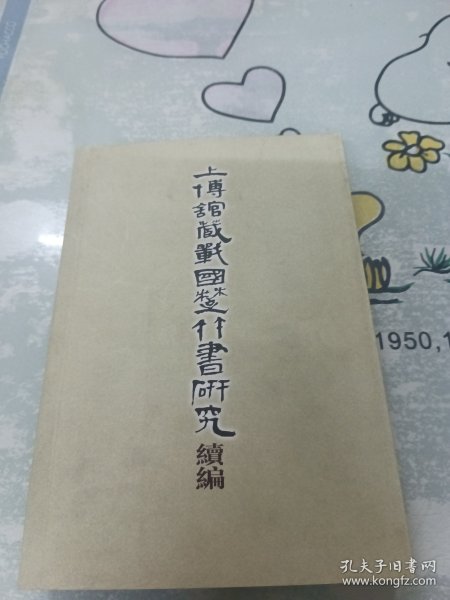 上博館藏戰國楚竹書研究
續編
1950,1
孔夫子旧书网
www.kongfz.com